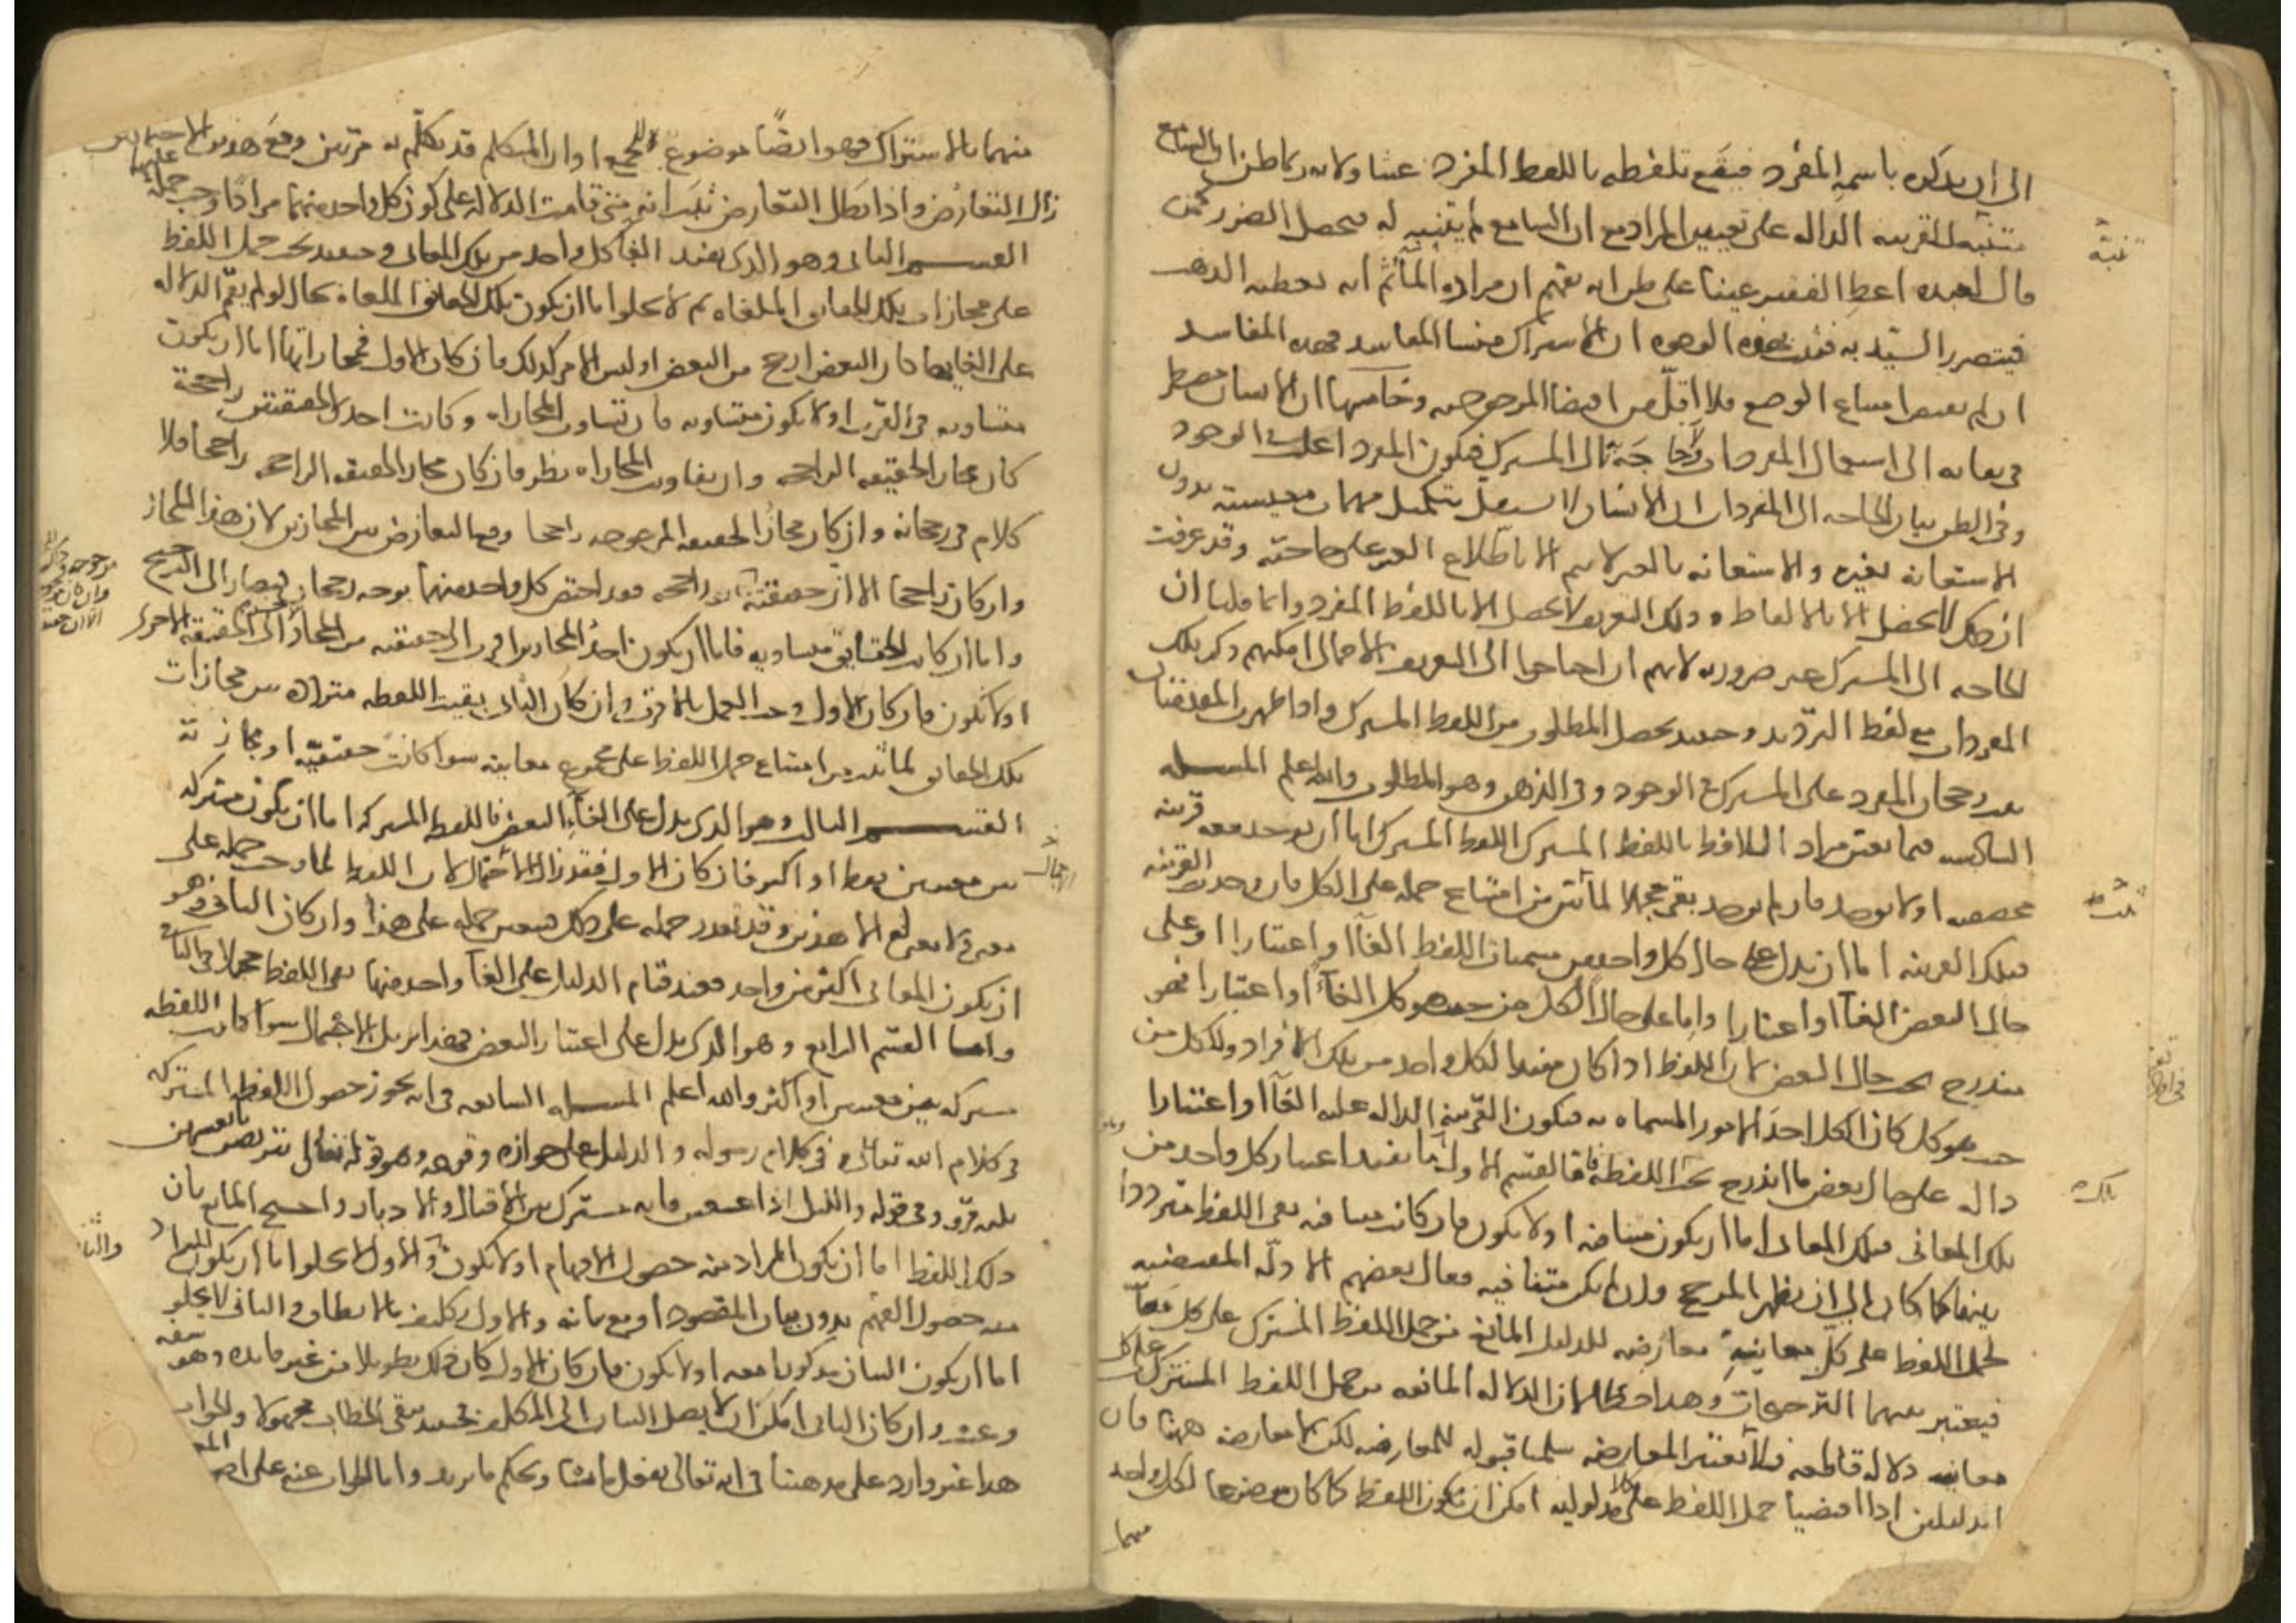 الى ان يذكره باسمه المفرد فيقع تلفظه باللفظ المفرد عبثا ولانه ربما ظن ان السامع
تنبه للقرينه الداله على تعيين المراد مع ان السامع لم يتنبه له فيحصل الضرر كمن
قال لعبده اعط الفقير عينا على ظن انه يفهم ان مراده الماء ثم انه يعطيه الذهب
فيتضرر السيد به فثبت بهذه الوجوه ان الاشتراك منشا المفاسد فهذه المفاسد
ان لم تقتض امتناع الوضع فلا اقل من اقتضا المرجوحيه وخامسها ان الانسان مضطر
في بقائه الى استعمال المفردات ولا حاجة الى المشترك فيكون المفرد اغلب في الوجود
وفي الظن بيان الحاجه الى المفردات ان الانسان لا يستقل بتكميل مهمات معيشته بدون
الاستعانة بغيره والاستعانه بالغير لا تتم الا باطلاع الغير على حاجته وقد عرفت
ان ذلك لا يحصل الا بالالفاظ وذلك التعريف لا يحصل الا باللفظ المفرد وانما قلنا ان
الحاجه الى المشترك غير ضروريه لانهم ان احتاجوا الى التعريف الاجمالي امكنهم ذكر تلك
المفردات مع لفظ الترديد وحينئذ يحصل المطلوب من اللفظ المشترك واذا ظهرت المقدمتان
ثبت رجحان المفرد على المشترك في الوجود وفي الذهن وهو المطلوب والله اعلم المسله
السادسه فيما يعين مراد اللافظ باللفظ المشترك اللفظ المشترك اما ان يوجد معه قرينه
مخصصه اولا يوجد فان لم يوجد بقي مجملا لما ثبت من امتناع حمله على الكل فان وجدت القرينه
فتلك القرينه اما ان تدل على حال كل واحد من مسميات اللفظ الغآا او اعتبارا او على
حال البعض الغآا او اعتبارا واما على حال الكل من حيث هو كل الغآا او اعتبارا فهو
مندرج تحت حال البعض لان اللفظ اذا كان مفيدا لكل واحد من تلك الافراد ولكل من
حيث هو كل كان الكل احد الامور المسماه به فتكون القرينه الداله عليه الغآا او اعتبارا
داله على حال بعض ما اندرج تحت اللفظه فاما القسم الاول وهو ما يفيد اعتبار كل واحد من
تلك المعاني فتلك المعاني اما ان يكون متنافيه اولا يكون فان كانت متنافيه بقي اللفظ مترددا
بينها كما كان الى ان يظهر المرجح وان لم يكن متنافيه فقال بعضهم الادله المقتضيه
لحمل اللفظ على كل معانيه معارضه للدليل المانع من حمل اللفظ المشترك على كل معانيه
فيعتبر بينهما الترجيحات وهذا خطا لان الدلاله المانعه من حمل اللفظ المشترك على كل
معانيه دلاله قاطعه فلا تعتبر المعارضه سلمنا قبوله للمعارضه لكن لا معارضه ههنا فان
الدليلين اذا اقتضيا حمل اللفظ على كلا مدلوليه امكن ان يكون اللفظ كما كان موضوعا لكل واحد
منهما
منهما بالاشتراك فهو ايضا موضوع للجميع او ان المتكلم قد تكلم به مرتين ومع هذين الاحتمالين
زال التعارض واذا بطل التعارض ثبت انه متى قامت الدلاله على كون كل واحد منهما مرادا وجب حمله عليها
القسم الثاني وهو الذي يفيد الغا كل واحد من تلك المعاني وحينئذ يجب حمل اللفظ
على مجازات تلك المعاني الملغاه ثم لا يخلوا اما ان يكون تلك المعاني الملغاة بحال لو لم يقم الدلاله
على الغايها كان البعض ارجح من البعض او ليس الامر كذلك فان كان الاول فمجازاتها اما ان يكون
متساويه في القرب اولا يكون متساويه فان تساوت المجازات وكانت احدى الحقيقتين راجحة
كان مجاز الحقيقه الراجحه وان تفاوتت المجازات نظر فان كان مجاز الحقيقه الراجحه راجحا فلا
كلام في رجحانه وان كان مجاز الحقيقه المرجوحه راجحا وقع التعارض بين المجازين لان هذا المجاز
وان كان راجحا الا ان حقيقته راجحه فقد اختص كل واحد منهما بوجه رجحان فيصار الى الترجيح
واما ان كانت الحقايق متساويه فاما ان يكون احد المجازين اقرب الى حقيقته من المجاز الى الحقيقه الاخرى
اولا يكون فان كان الاول وجب الحمل بالاقرب وان كان الثاني بقيت اللفظه متردده بين مجازات
تلك المعاني لما ثبت من امتناع حمل اللفظ على مجموع معانيه سوا كانت حقيقية او مجازية
القسم الثالث وهو الذي يدل على الغآء البعض فاللفظ المشتركه اما ان يكون مشتركه
بين معنيين فقط او اكثر فان كان الاول فقد زال الاحتمال لان اللفظ لما وجب حمله على
معنى ولا معنى له الا هذين وقد تعذر حمله على ذلك تعين حمله على هذا وان كان الثاني وهو
ان يكون المعاني اكثر من واحد فعند قيام الدليل على الغآ واحد منها بقي اللفظ مجملا في الباقي
واما القسم الرابع وهو الذي يدل على اعتبار البعض فهذا يزيل الاجمال سوا كانت اللفظه
مشتركه بين معنيين او اكثر والله اعلم المسله السابعه في انه يجوز حصول اللفظ المشترك
في كلام الله تعالى وفي كلام رسوله والدليل على جوازه وقوعه وهو قوله تعالى يتربصن بانفسهن
ثلثه قروء وفي قوله والليل اذا عسعس فانه مشترك بين الاقبال والادبار واحتج المانع بان
ذلك اللفظ اما ان يكون المراد منه حصول الافهام اولا يكون والاول لا يخلوا اما ان يكون المراد
منه حصول الفهم بدون بيان المقصود او مع بيانه والاول تكليف ما لا يطاق والثاني لا يخلو
اما ان يكون البيان مذكورا معه اولا يكون فان كان الاول كان ذلك تطويلا من غير فايده وهو سفه
وعبث وان كان الثاني امكن ان لا يصل البيان الى المكلف فحينئذ يبقى الخطاب مجهولا والجواب
هذا غير وارد على مذهبنا في انه تعالى يفعل ما يشا ويحكم ما يريد واما الجواب عنه على اصول